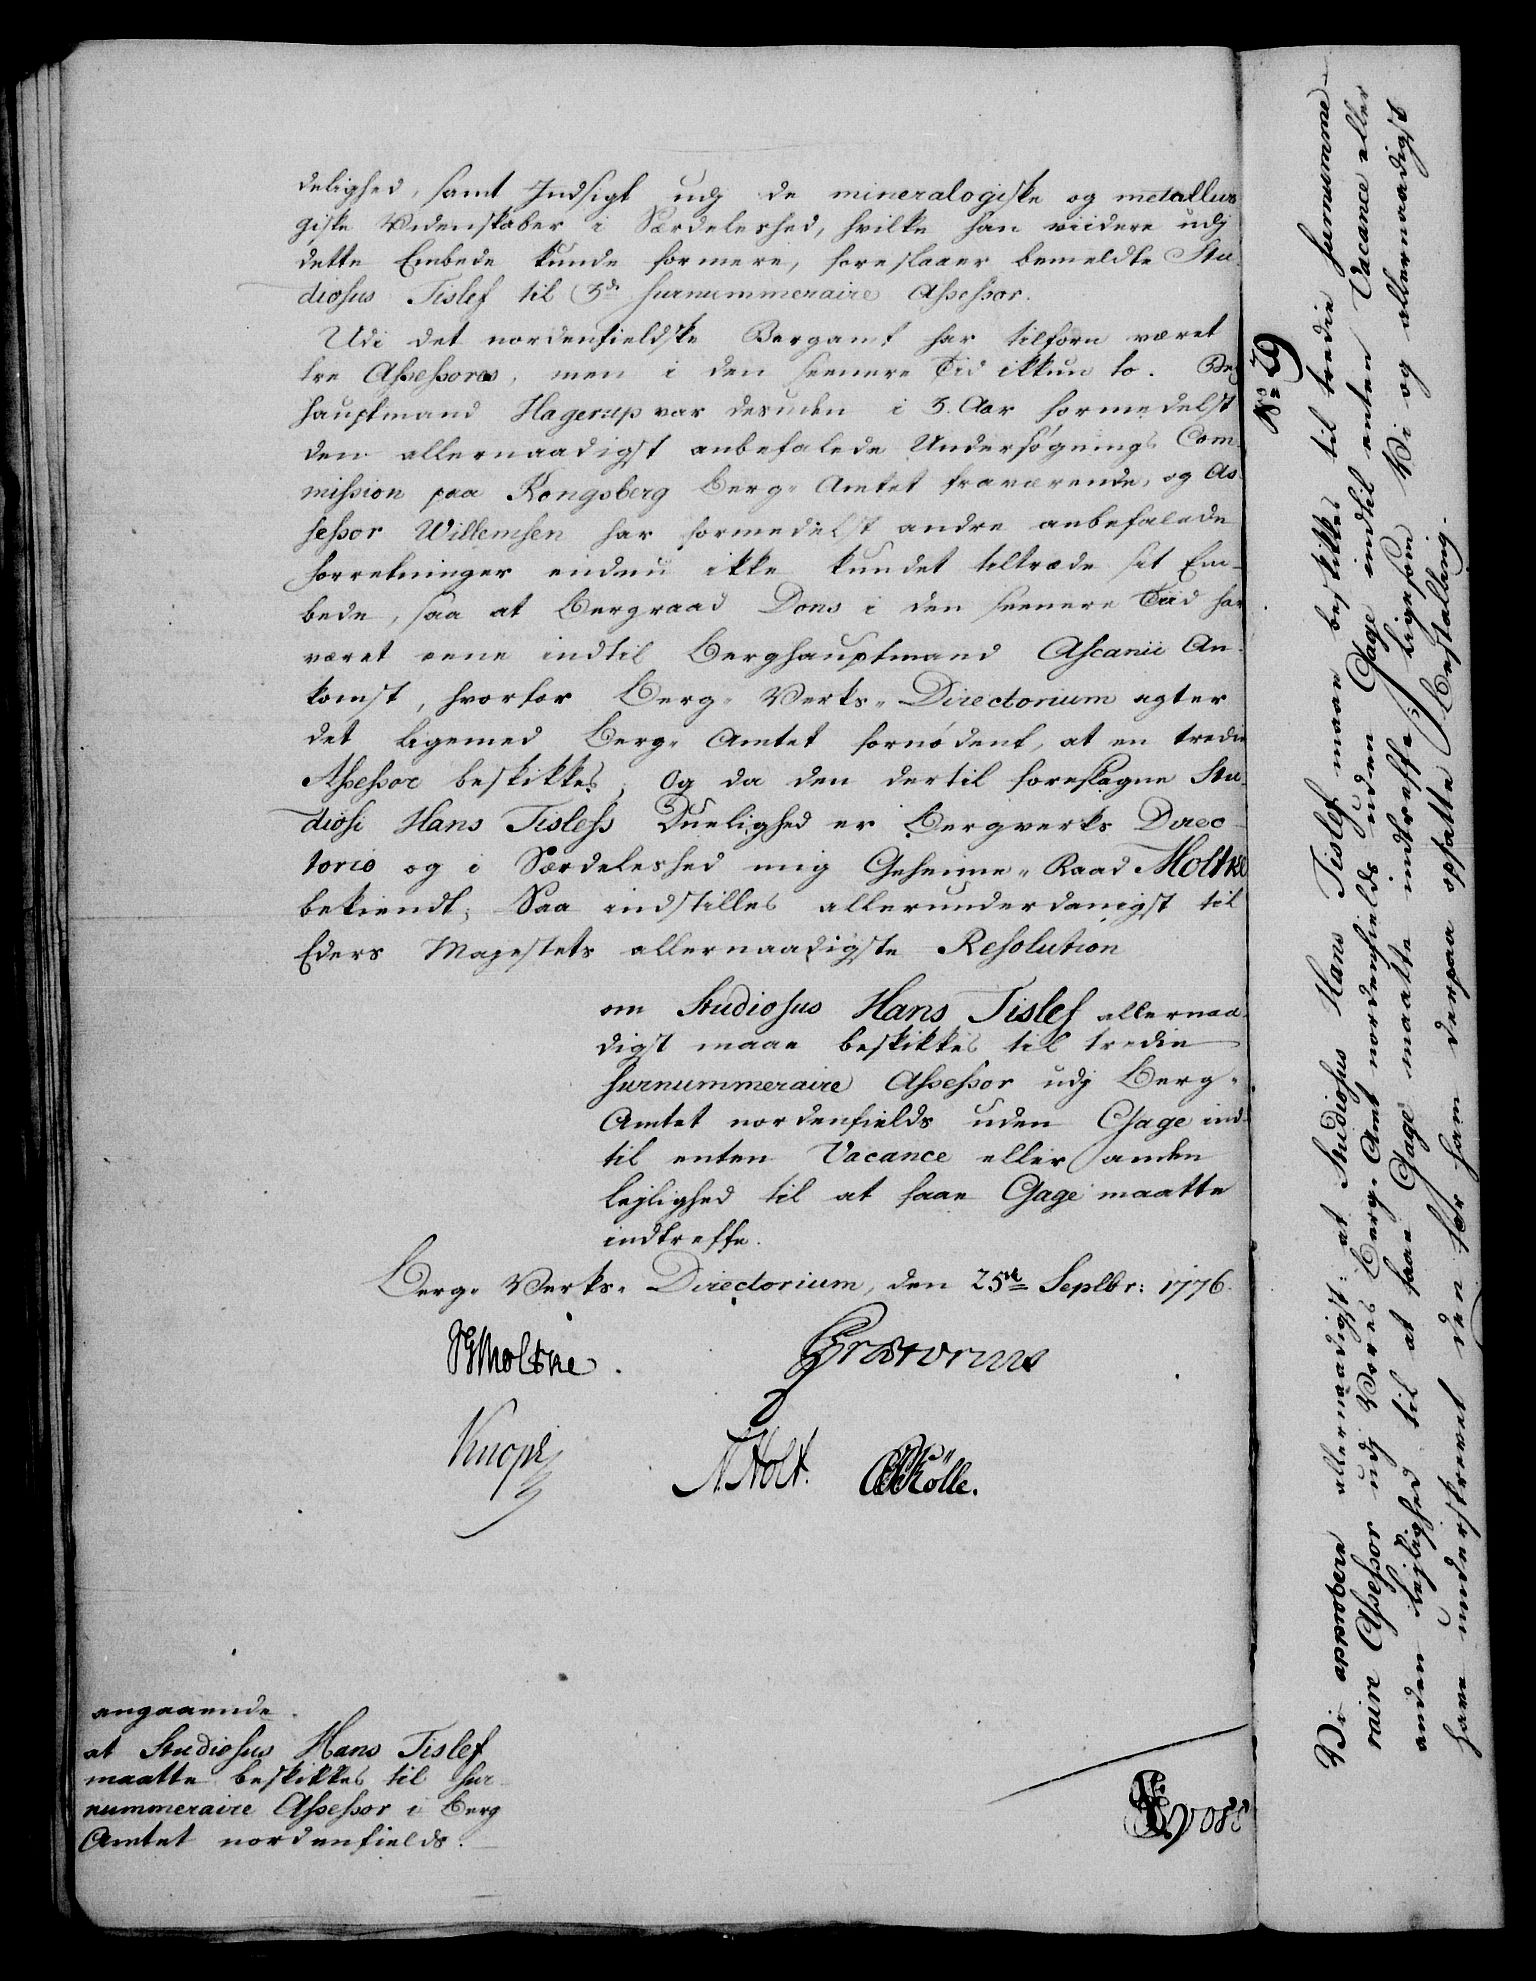 delighed, samt Indsigt udj de mineralogiske og metallur
giske Videnskaber i Særdeleshed, hvilke han viidere udj
dette Embede kunde formere, foreslaaer bemeldte Stu-
diosus Tislef til 3de surnummeraire Assessor.
Udi det nordenfieldske Bergamt har tilforn været
tre Assessores, men i den seenere Tid ikkun to. Berg
hauptmand Hagerup var desuden i 3. Aar formedelst
den allernaadigst anbefalede Undersøgnings Com-
mission paa Kongsberg Berg-Amtet fraværende, og As
sessor Willemsen har formedelst andre anbefalede
forretninger endnu ikke kundet tiltræde sit Em-
bede, saa at Bergraad Dons i den seenere Tiid har
været eene indtil Berghauptmand Ascanii An-
komst, hvorfor Berg-Verks-Directorium agter
det ligemed Berg-Amtet fornødent, at en tredie
Assessor beskikkes, Og da den dertil foreslagne Stu-
diosi Hans Tislefs Duelighed er Bergverks Direc-
torio og i Særdeleshed mig Geheime-Raad Moltke
bekiendt; Saa indstilles allerunderdanigst til
Eders Majestets allernaadigste Resolution
om Studiosus Hans Tislef allernaa-
digst maae beskikkes til tredie
surnummeraire Assessor udj Berg-
Amtet nordenfields uden Gage ind-
til enten Vacance eller anden
lejlighed til at faae Gage maatte
indtreffe.
Berg-Verks-Directorium, den 25de Septbr: 1776.
Moltke.
Knoph
N. Holt. Kölle.
angaaende.
at Studiosus Hans Tislef
maatte beskikkes til sur-
nummeraire Assessor i Berg
Amtet nordenfields.
No: 79
Vi approbere allernaadigst: at Studiosus Hans Tislef maae beskikkes til tredie surnumme-
raire Assessor udj Vores Berg-Amt nordenfields uden Gage indtil enten Vacance eller
anden lejlighed til at faae Gage maatte indtreffe; ligesom Vi og allernaadigst
have underskrevet den for ham derpaa opsatte Bestalling.